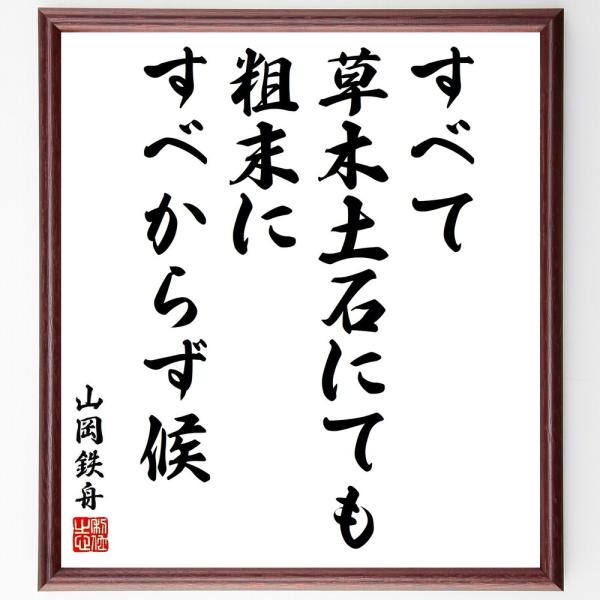 すべて
草木土石にても
粗末に
すべからず候
山岡鉄舟